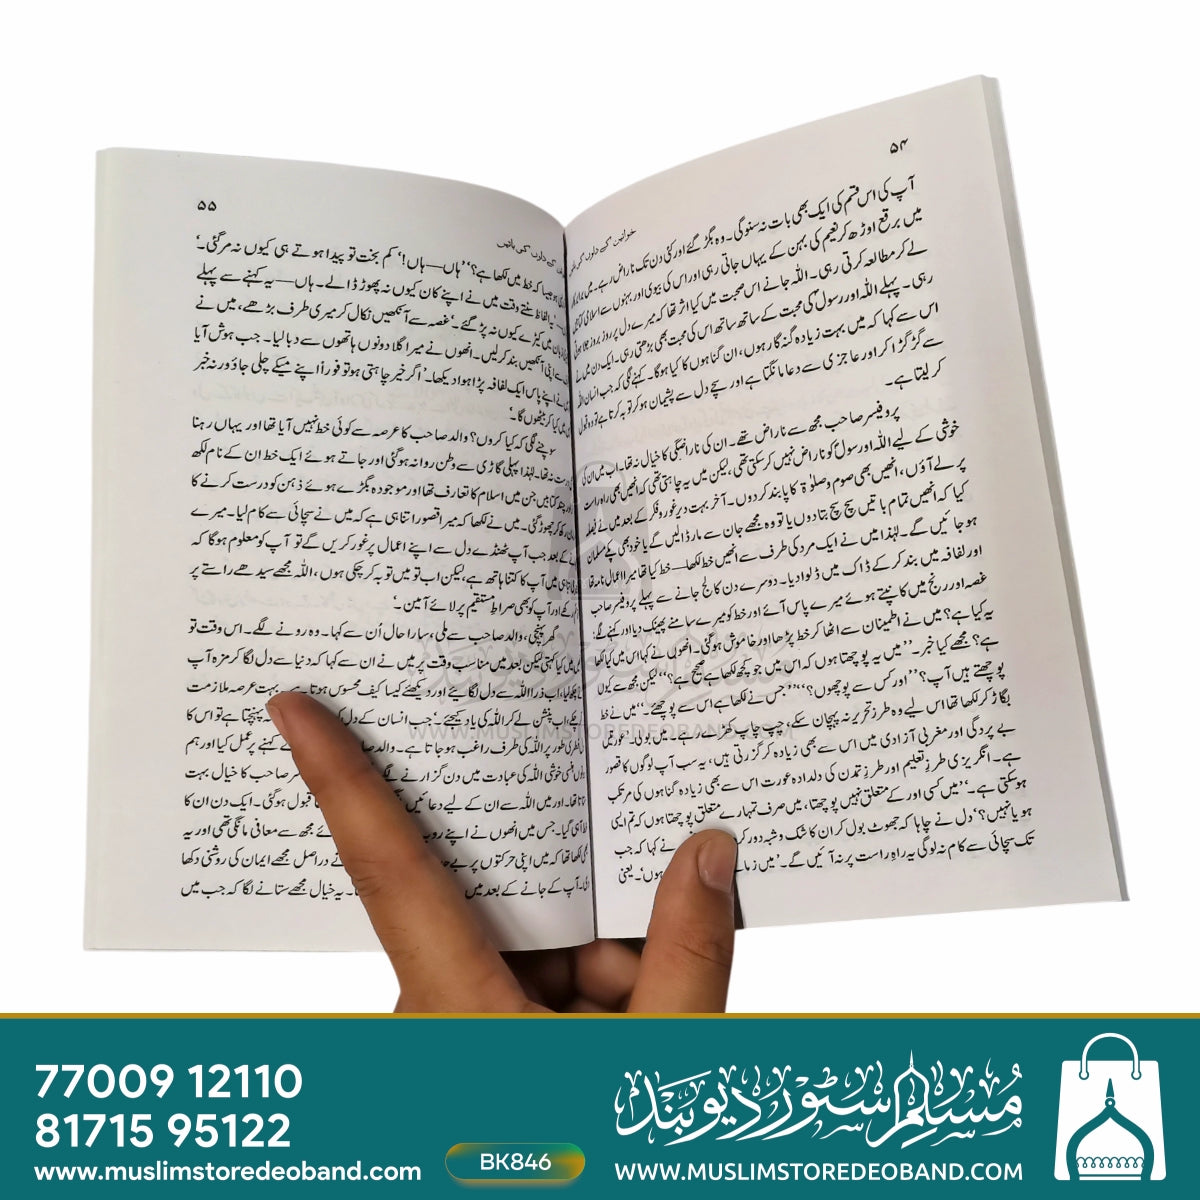 ۵۴
خواتین کے دلوں کی باتیں
آپ کی اس قسم کی ایک بھی بات نہ سنوگی۔ وہ بگڑ گئے اور کئی دن تک ناراض رہے۔ میں
میں برقع اوڑھ کر نعیم کی بہن کے یہاں جاتی رہی اور اس کی بیوی اور بہنوں سے اسلامی
لے کر مطالعہ کرتی رہی۔ اللہ جانے اس صحبت میں کیا اثر تھا کہ میرے دل پر روز بروز
رہی۔ پہلے اللہ اور رسولؐ کی محبت کے ساتھ ساتھ اس کی محبت بھی بڑھتی رہی۔ ایک دن میں نے
اس سے کہا کہ میں بہت زیادہ گنہگار ہوں، ان گناہوں کا کیا ہوگا۔ کہنے لگی کہ جب انسان اللہ
سے گڑ گڑا کر اور عاجزی سے دعا مانگتا ہے اور سچے دل سے پشیمان ہو کر توبہ کرتا ہے تو وہ قبول
کر لیتا ہے۔
پروفیسر صاحب مجھ سے ناراض تھے۔ ان کی ناراضگی کا خیال نہ تھا۔ اب میں ان کی
خوشی کے لیے اللہ اور رسولؐ کو ناراض نہیں کر سکتی تھی، لیکن میں یہ چاہتی تھی کہ انھیں بھی راہ راست
پر لے آؤں، انھیں بھی صوم وصلوٰۃ کا پابند کر دوں۔ آخر بہت دیر غور و فکر کے بعد میں نے فیصلہ
کیا کہ انھیں تمام باتیں سچ سچ بتا دوں یا تو وہ مجھے جان سے مار ڈالیں گے یا خود بھی پکے مسلمان
ہو جائیں گے۔ لہٰذا میں نے ایک مرد کی طرف سے انھیں خط لکھا— خط کیا تھا میرا اعمال نامہ تھا
اور لفافہ میں بند کر کے ڈاک میں ڈلوا دیا۔ دوسرے دن کالج جانے سے پہلے پروفیسر صاحب
غصہ اور رنج میں کانپتے ہوئے میرے پاس آئے اور خط کو میرے سامنے پھینک دیا اور کہنے لگے:
یہ کیا ہے؟ میں نے اطمینان سے اٹھا کر خط پڑھا اور خاموش ہوگئی۔ انھوں نے کہا اس میں کیا لکھا
ہے؟ مجھے کیا خبر۔ ”میں یہ پوچھتا ہوں کہ اس میں جو کچھ لکھا ہے صحیح ہے؟“ لیکن مجھ سے کیوں
پوچھتے ہیں آپ؟“ ”اور کس سے پوچھوں؟“ ”جس نے لکھا ہے اس سے پوچھئے۔“ میں نے خط
بگاڑ کر لکھا تھا اس لیے وہ طرز تحریر نہ پہچان سکے، چپ چاپ کھڑے رہے۔ میں بولی۔ غور میں
بے پردگی اور مغربی آزادی میں اس سے بھی زیادہ کر گزرتی ہیں، یہ سب آپ لوگوں کا قصور
ہے۔ انگریزی طرزِ تعلیم اور طرزِ تمدن کی دلدادہ عورت اس سے بھی زیادہ گناہوں کی مرتکب
ہوسکتی ہے۔“ ”میں کسی اور کے متعلق نہیں پوچھتا، میں صرف تمہارے متعلق پوچھتا ہوں کہ تم ایسی
ہو یا نہیں؟“ دل نے چاہا کہ جھوٹ بول کر ان کا شک و شبہ دور کر نے کہا کہ جب
تک سچائی سے کام نہ لوگی یہ راہِ راست پر نہ آئیں گے۔ ”میں زما ہوں‘۔ یعنی
۵۵
کے دلوں کی باتیں
جیسا کہ خط میں لکھا ہے؟“ ”ہاں— ہاں!“ کم بخت تو پیدا ہوتے ہی کیوں نہ مرگئی۔‘
یہ الفاظ سنتے وقت میں نے اپنے کان کیوں نہ پھوڑ ڈالے۔ ہاں— یہ کہنے سے پہلے
زبان میں کیڑے کیوں نہ پڑ گئے۔‘ غصہ سے آنکھیں نکال کر میری طرف بڑھے، میں نے
سے اپنی آنکھیں بند کر لیں۔ انھوں نے میرا گلا دونوں ہاتھوں سے دبا لیا۔ جب ہوش آیا
نے اپنے پاس ایک لفافہ پڑا ہوا دیکھا۔ ’اگر خیر چاہتی ہو تو فوراً اپنے میکے چلی جاؤ ورنہ خبر
میں کیا کر بیٹھوں گا۔‘
سوچنے لگی کہ کیا کروں؟ والد صاحب کا عرصہ سے کوئی خط نہیں آیا تھا اور یہاں رہنا
نہ تھا۔ لہٰذا پہلی گاڑی سے وطن روانہ ہوگئی اور جاتے ہوئے ایک خط ان کے نام لکھ
اور چند کتابیں جن میں اسلام کا تعارف تھا اور موجودہ بگڑے ہوئے ذہن کو درست کرنے کا
چھوڑ گئی۔ میں نے لکھا کہ میرا قصور اتنا ہی ہے کہ میں نے سچائی سے کام لیا۔ میرے
کے بعد جب آپ ٹھنڈے دل سے اپنے اعمال پر غور کریں گے تو آپ کو معلوم ہوگا کہ
میں آپ کا کتنا ہاتھ ہے، لیکن اب تو میں توبہ کر چکی ہوں، اللہ مجھے سیدھے راستے پر
اور آپ کو بھی صراطِ مستقیم پر لائے آمین۔‘
گھر پہنچی، والد صاحب سے ملی، سارا حال اُن سے کہا۔ وہ رونے لگے۔ اس وقت تو
میں کیا کہتی لیکن بعد میں مناسب وقت پر میں نے ان سے کہا کہ دنیا سے دل لگا کر مزہ آپ
اب ذرا اللہ سے دل لگایئے اور دیکھئے کیسا کیف محسوس ہوتا ہے۔ بہت عرصہ ملازمت
اب پنشن لے کر اللہ کی یاد کیجئے۔ ’جب انسان کے دل پہنچتا ہے تو اس کا
فطری طور پر اللہ کی طرف راغب ہو جاتا ہے۔ والد صا کے کہنے پر عمل کیا اور ہم
ہنسی خوشی اللہ کی عبادت میں دن گزارنے لگے سر صاحب کا خیال بہت
تھا۔ اور میں اللہ سے ان کے لیے دعائیں قبول ہوگئی۔ ایک دن ان کا
خط آ ہی گیا۔ جس میں انھوں نے اپنے رویہ ئے مجھ سے معافی مانگی تھی اور یہ
بھی لکھا تھا کہ میں اپنی حرکتوں پر بے حد نے دراصل مجھے ایمان کی روشنی دکھا
دی۔ آپ کے جانے کے بعد میں ۔ یہ خیال مجھے ستانے لگا کہ جب میں
WWW.MUSLIMSTOREDEOBAND.COM
77009 12110
81715 95122
www.muslimstoredeoband.com
BK846
مسلم سٹور دیوبند
WWW.MUSLIMSTOREDEOBAND.COM